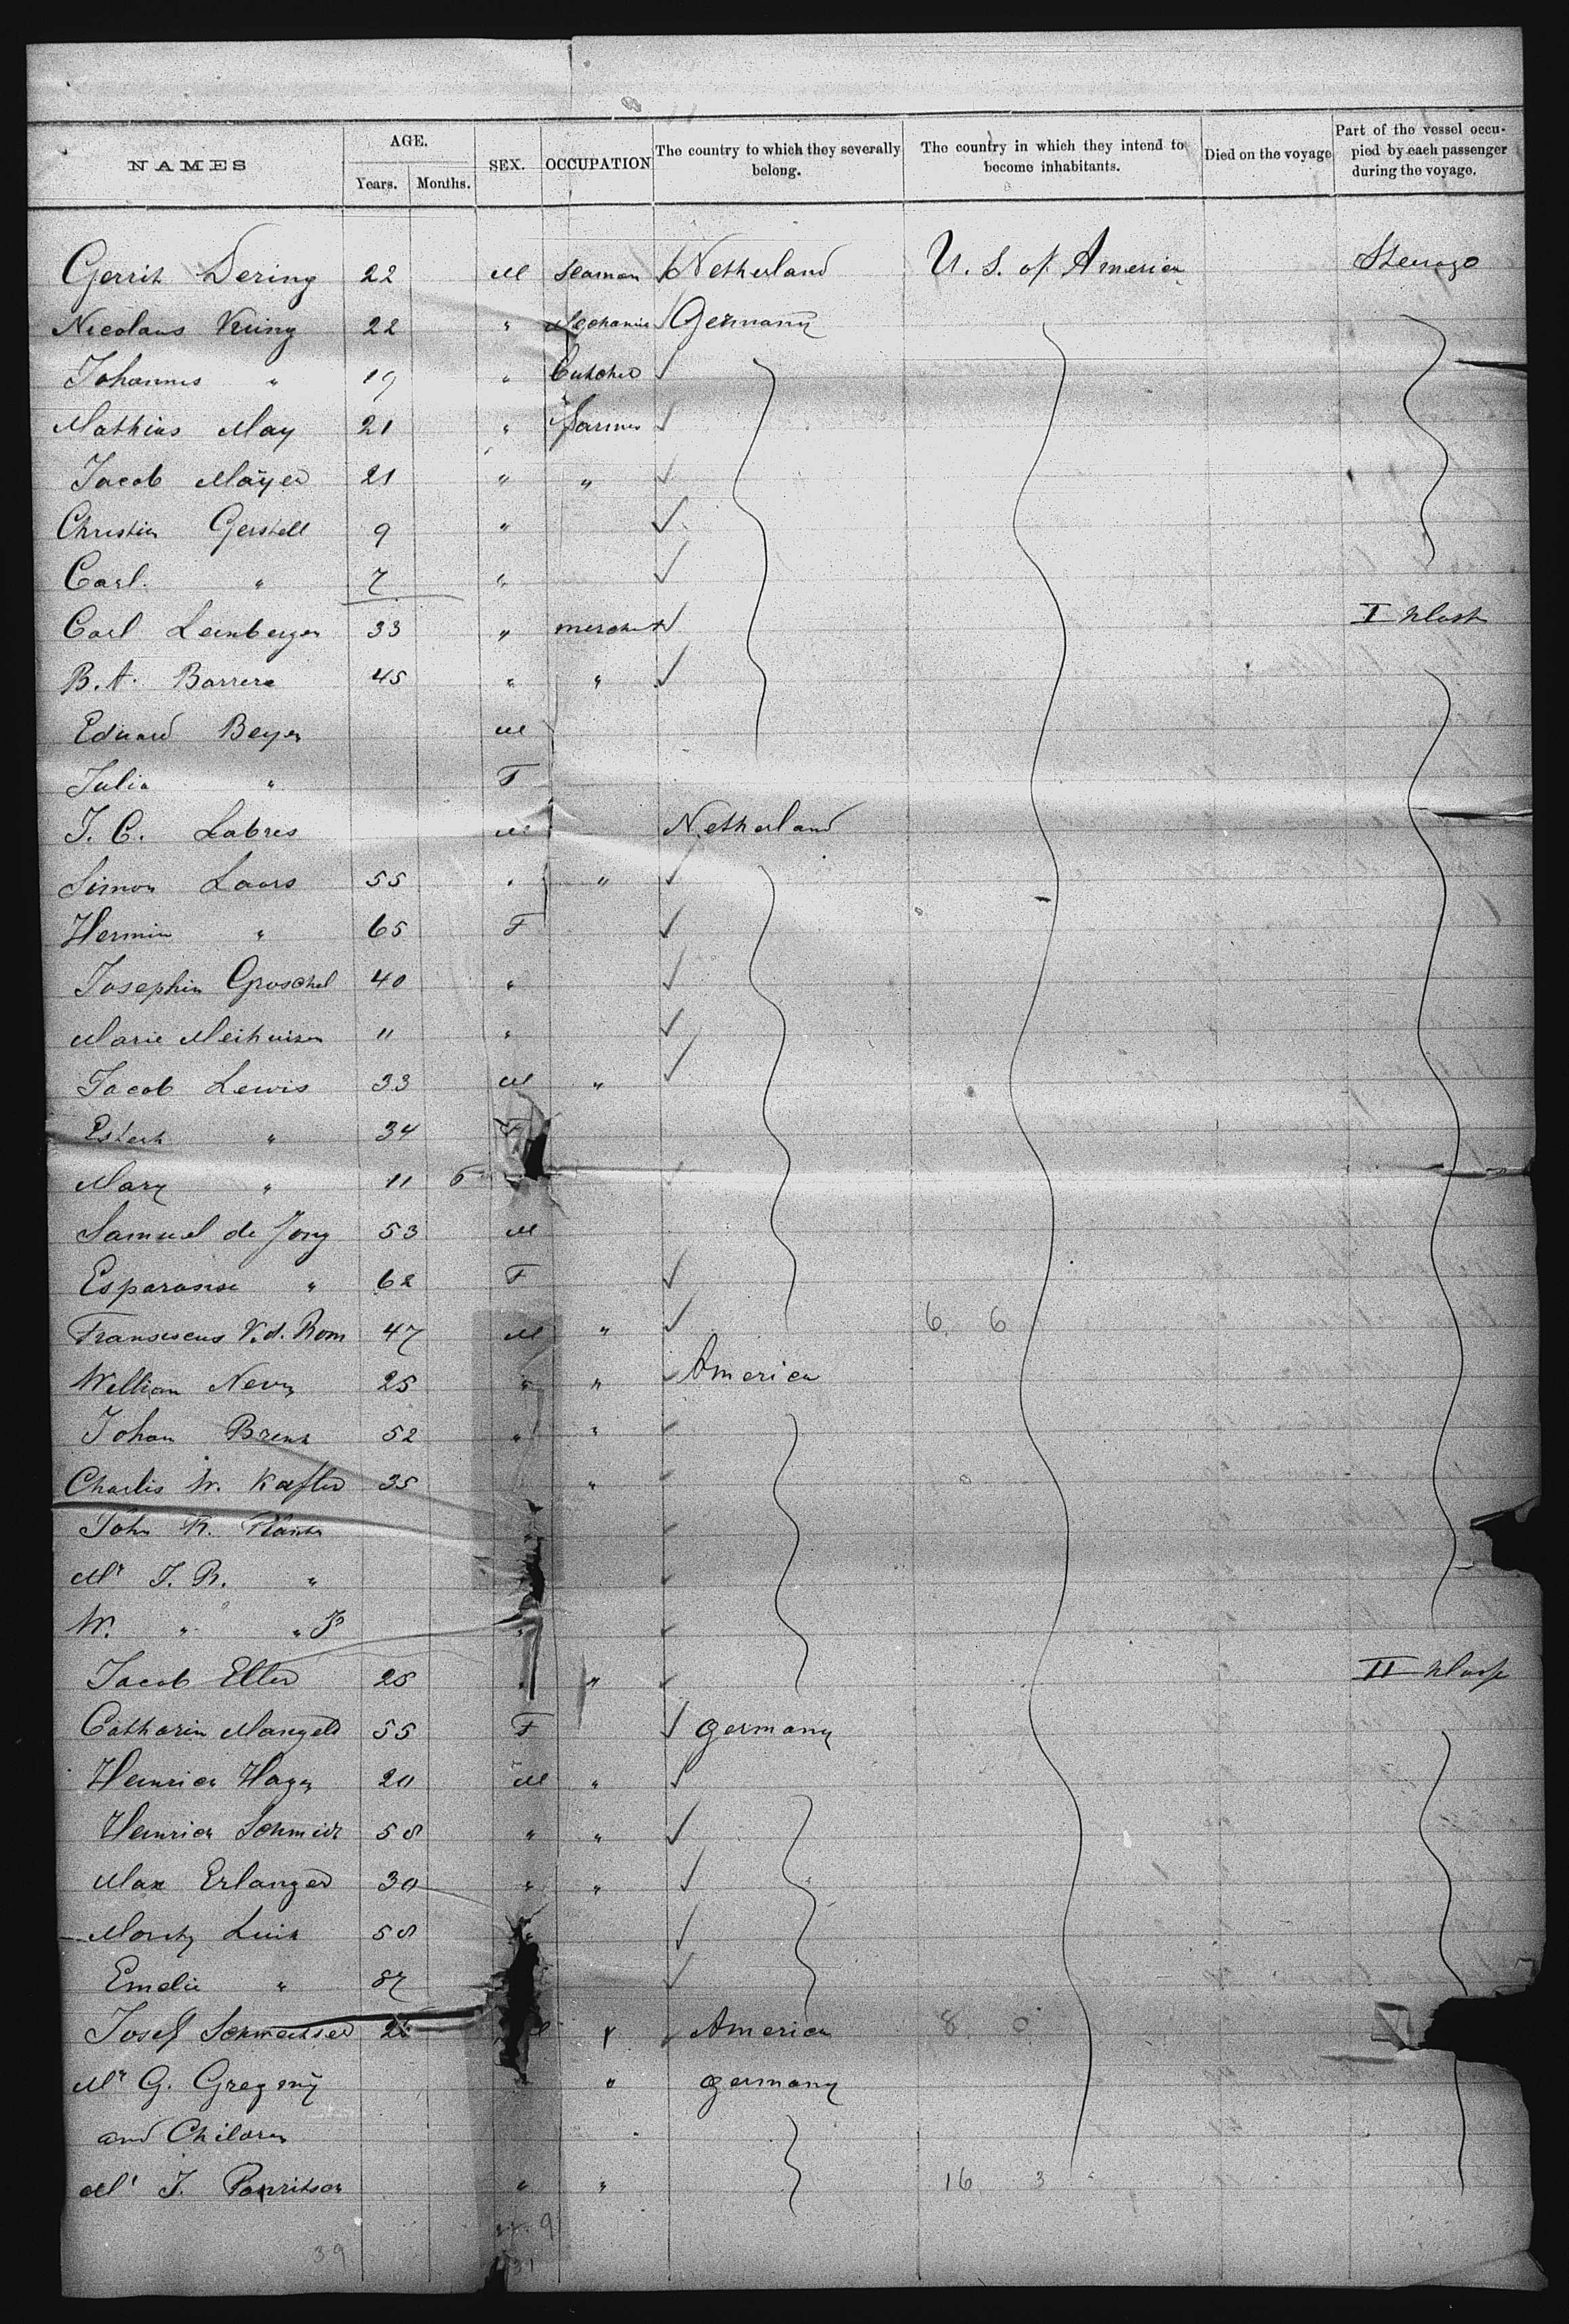 NAMES AGE. Years. Months. SEX. OCCUPATION The country to which they severally belong. The country in which they intend to become inhabitants. Died on the voyage Part of the vessel occupied by each passenger during the voyage.
Gerrit Dering 22 M Seaman Netherland U. S. of America Steerage
Nicolaus 22 " Mechanic Germany
Johannes " 19 " Butcher
Mathias May 21 " Farmer
Jacob Mayer 21 " "
Christian Gerstell 9 "
Carl " 7 "
Carl Leinberger 33 " merchant I klass
B. A. Barrera 45 " "
Eduard Beyer M
Julia " F
J. C. Labres M Netherland
Simon Laars 55 " "
Hermin " 65 F
Josephin Groschel 40 "
Marie Meihuizen 11 "
Jacob Lewis 33 M "
Esterh " 34 F
Mary " 11 6
Samuel de Jong 53 M
Esparanse " 62 F
Fransiscus V. d. Rom 47 M " 6 6
William Neven 25 " " America
Johan Brenk 52 " "
Charlis W. 35 "
John R.
Mr J. R. "
W. " " Jr
Jacob Eller 25 " II klass
Catharin Mangeld 55 F Germany
Heinrich Hagen 20 M "
Heinrich Schmidt 58 " "
Max Erlanger 30 " "
Moritz 58
Emelie "
Josef America 8 0
Mr G. Gregory " Germany
and Children
Mr J. " " 16 3
39 9
31